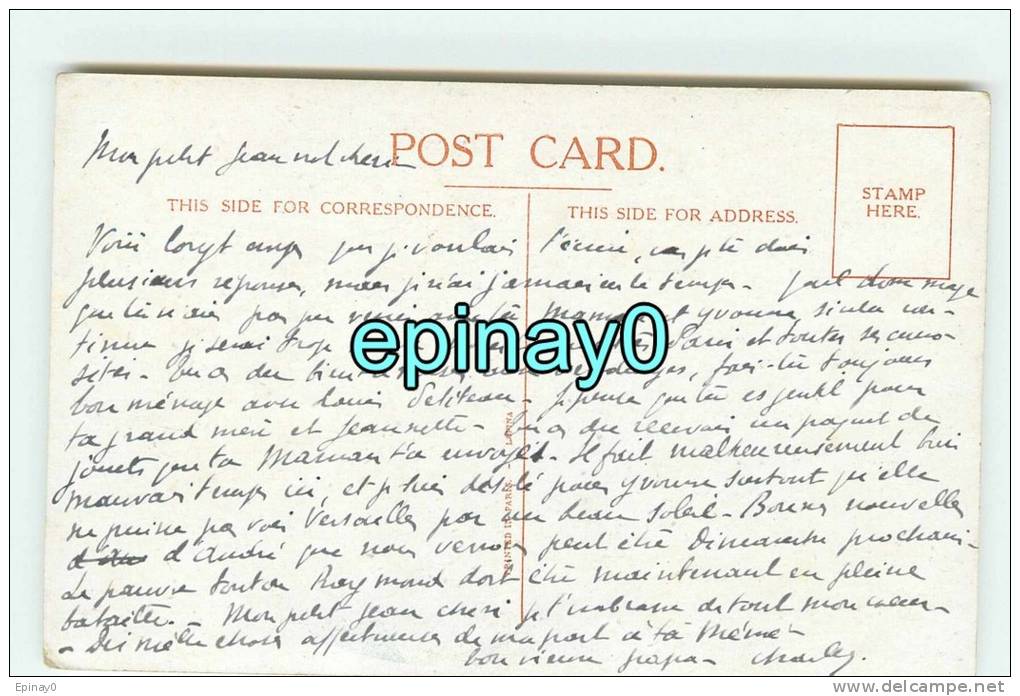 Mon petit Jeannot chéri
POST CARD.
THIS SIDE FOR CORRESPONDENCE.
THIS SIDE FOR ADDRESS.
STAMP
HERE.
Voici longtemps que je voulais t'écrire, car je te dois
plusieurs réponses, mais je n'ai jamais eu le temps - quel dommage
que tu n'aies pas pu venir avec ta Maman et Yvonne,
epinay0
tinue je serai trop Paris et toutes ses curio-
sités - Tu as dû bien vendanges, fais-tu toujours
bon ménage avec Louis Petiteau - Je pense que tu es gentil pour
ta grand mère et Jeannette - Tu as dû recevoir un paquet de
jouets que ta Maman t'a envoyé - Il fait malheureusement bien
mauvais temps ici, et je suis désolé pour Yvonne surtout qu'elle
ne puisse pas voir Versailles par un beau soleil - Bonnes nouvelles
d'André que nous verrons peut être Dimanche prochain -
Le pauvre tonton Raymond doit être maintenant en pleine
bataille - Mon petit Jean chéri je t'embrasse de tout mon coeur -
Dis mille choses affectueuses de ma part à ta Mémé -
ton vieux papa - Charley.
PRINTED IN PARIS.
Epinay0
www.delcampe.net